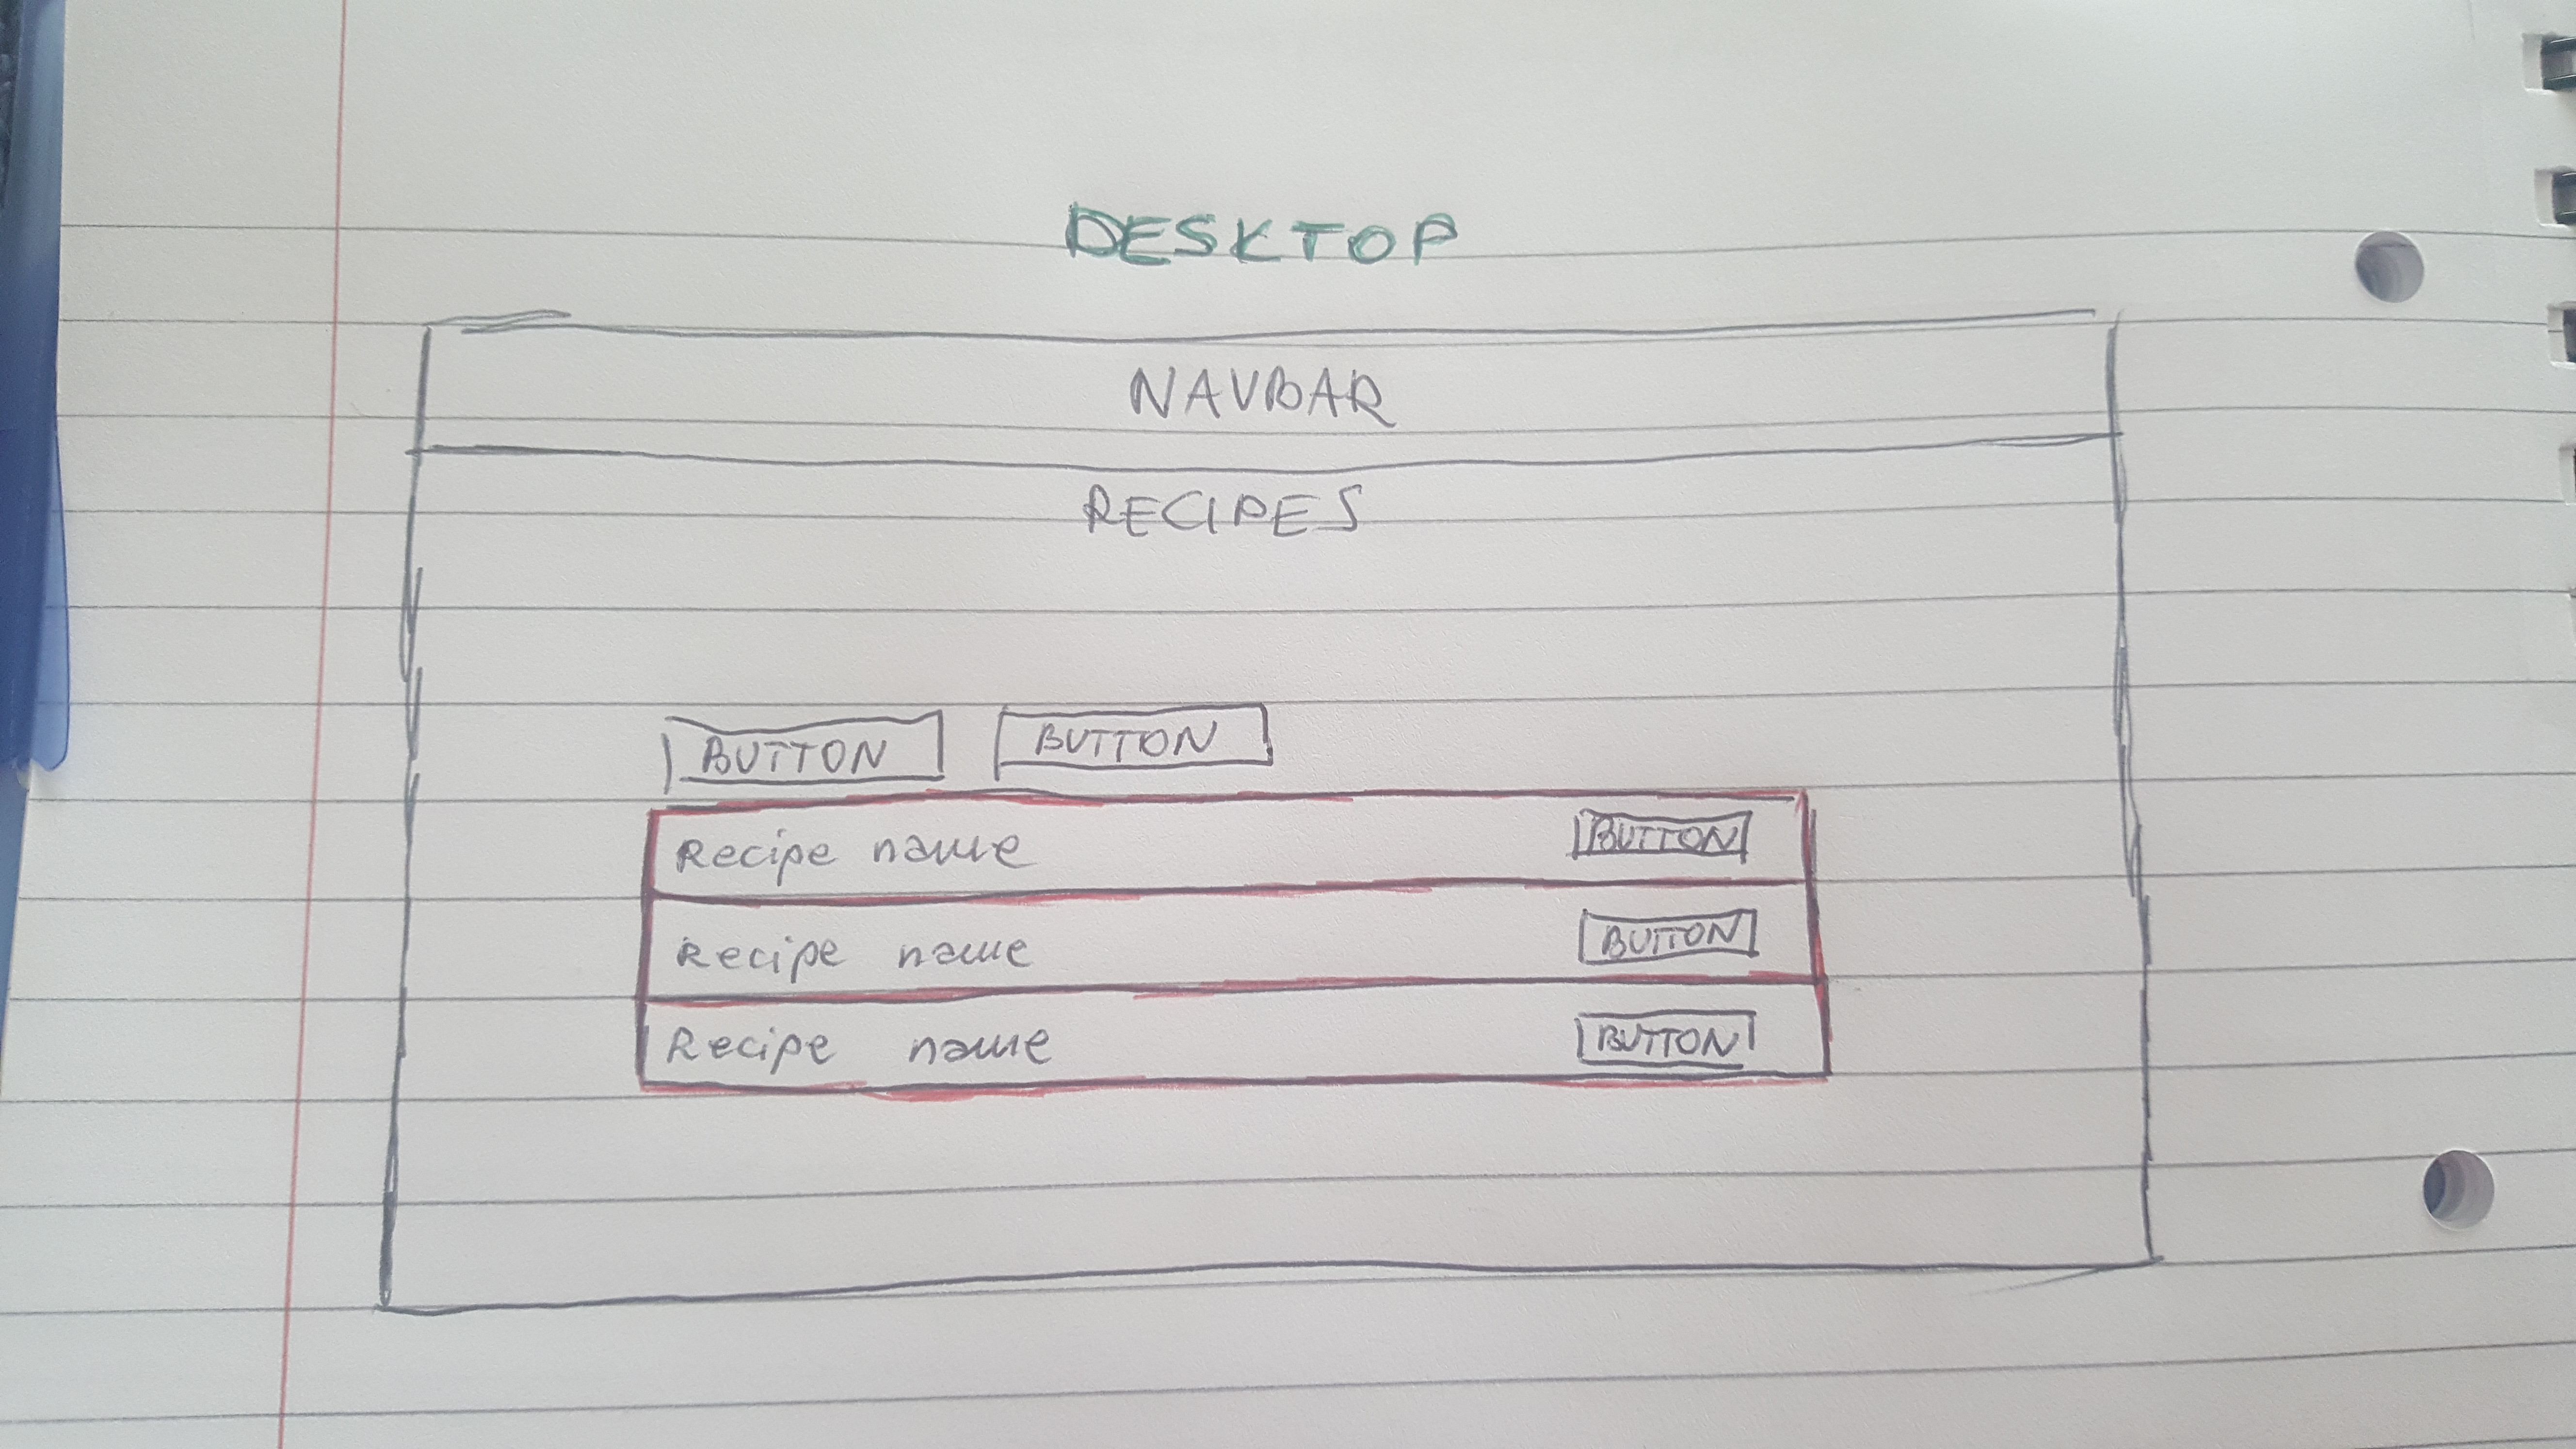 DESKTOP
NAVBAR
RECIPES
BUTTON BUTTON
Recipe name BUTTON
Recipe name BUTTON
Recipe name BUTTON